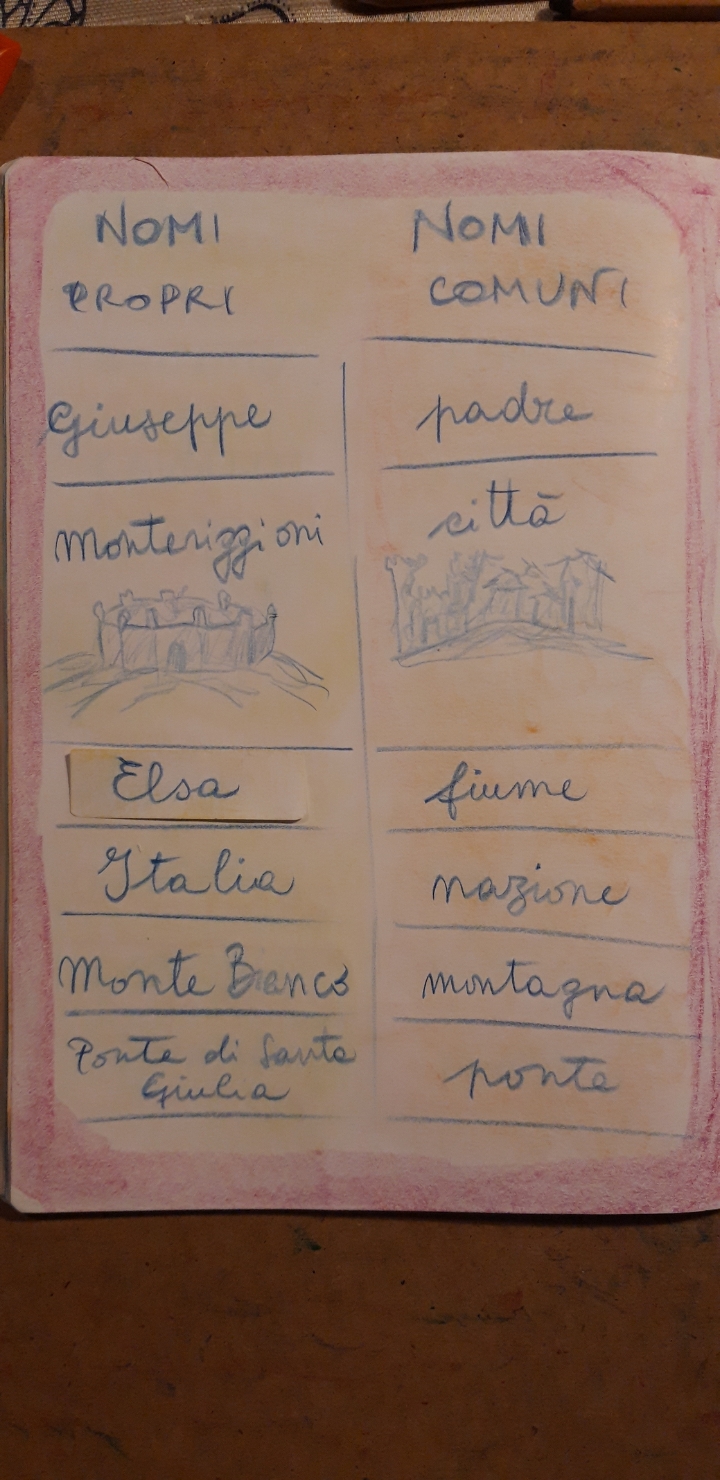 NOMI NOMI
PROPRI COMUNI
Giuseppe padre
Monteriggioni città
Elsa fiume
Italia nazione
Monte Bianco montagna
Ponte di Santa
Giulia ponte